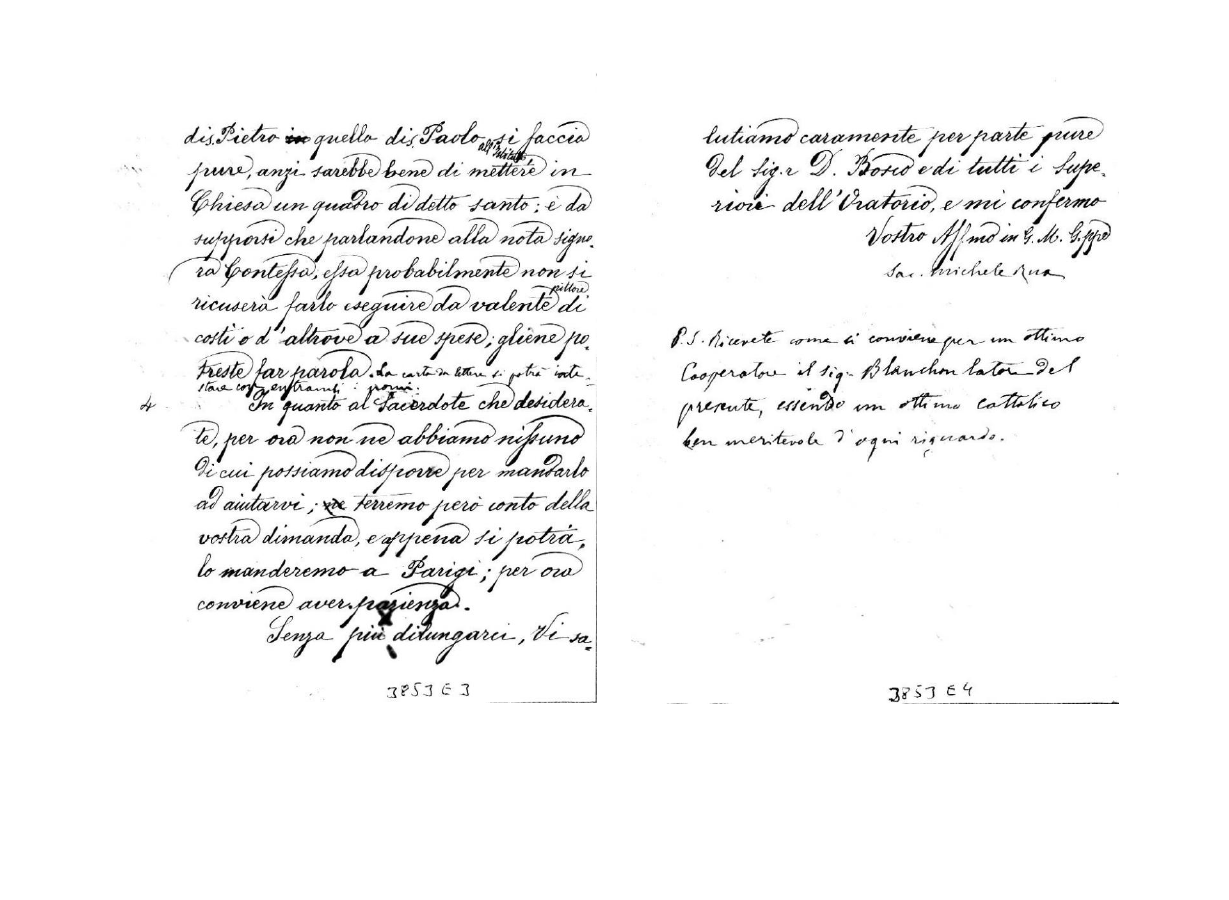 di S. Pietro in quello di S. Paolo, si faccia
all'Istituto
pure, anzi sarebbe bene di mettere in
Chiesa un quadro di detto santo; è da
supporsi che parlandone alla nota signo-
ra Contessa, essa probabilmente non si
pittore
ricuserà farlo eseguire da valente di
costì o d'altrove a sue spese; gliene po-
treste far parola. La carta da lettere si potrà inte-
stare con entrambi i nomi.
4 In quanto al Sacerdote che desidera-
te, per ora non ne abbiamo nissuno
di cui possiamo disporre per mandarlo
ad aiutarvi; ne terremo però conto della
vostra dimanda, e appena si potrà,
lo manderemo a Parigi; per ora
conviene aver pazienza.
Senza più dilungarci, Vi sa-
3853 E 3
lutiamo caramente per parte pure
del Sig.r D. Bosco e di tutti i Supe-
riori dell'Oratorio, e mi confermo
Vostro Affmo in G. M. G.ppe
Sac. Michele Rua
P.S. Ricevete come si conviene per un ottimo
Cooperatore il sig. Blanchon latore del
presente, essendo un ottimo cattolico
ben meritevole d'ogni riguardo.
3853 E 4